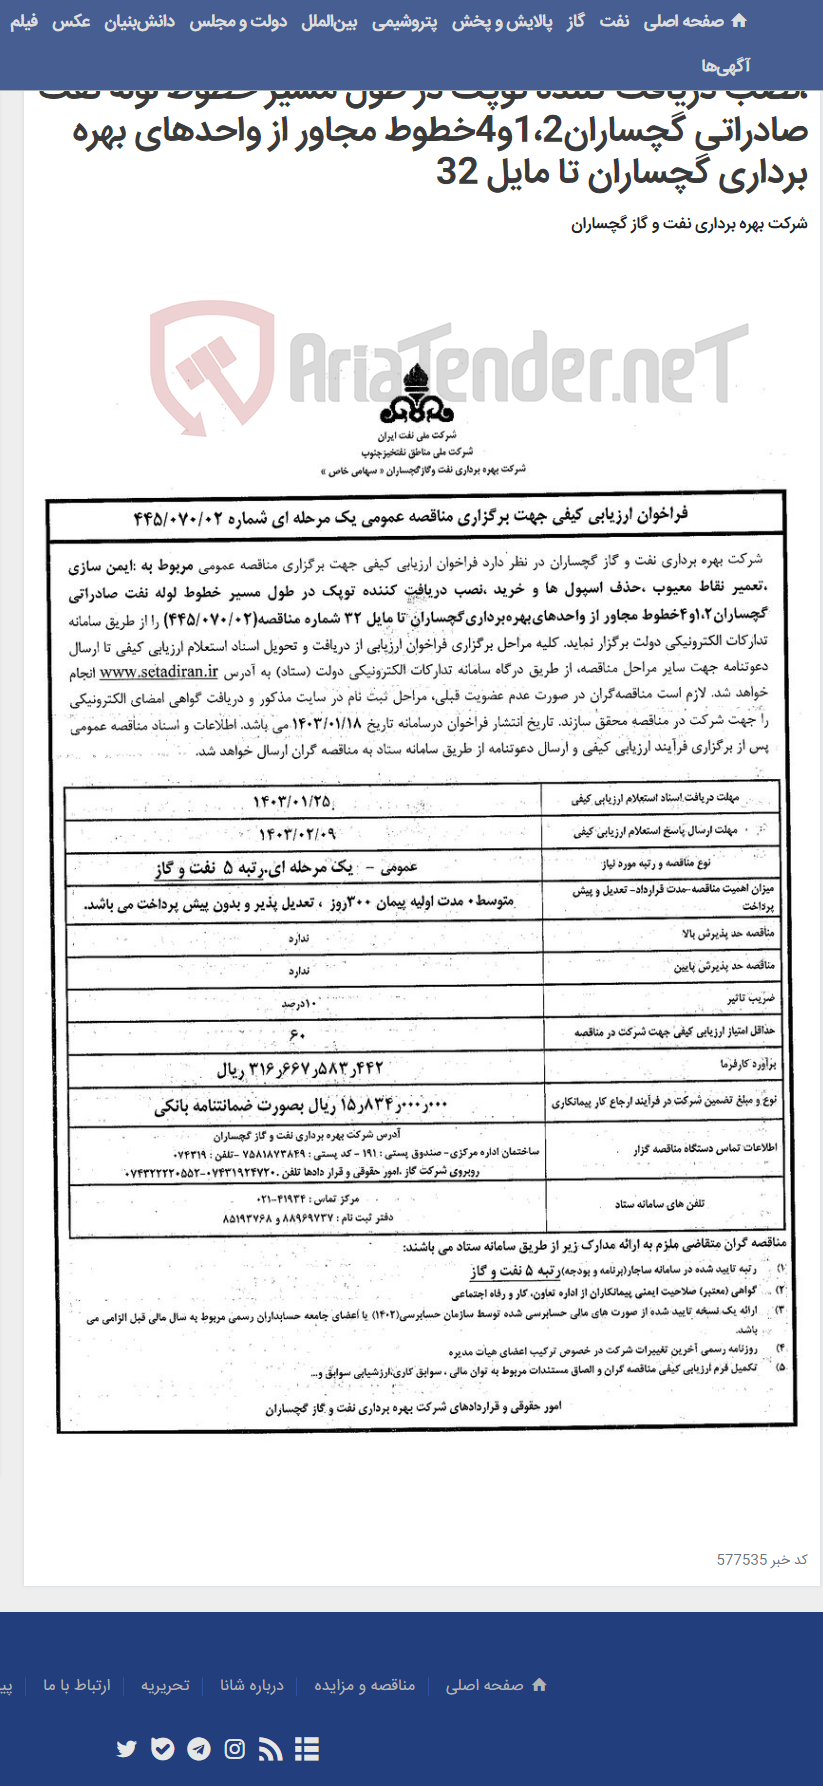 صفحه اصلی نفت گاز پالایش و پخش پتروشیمی بین‌الملل دولت و مجلس دانش‌بنیان عکس فیلم
آگهی‌ها
،نصب دریافت کننده توپک در طول مسیر خطوط لوله نفت
صادراتی گچساران1،2و4خطوط مجاور از واحدهای بهره
برداری گچساران تا مایل 32
شرکت بهره برداری نفت و گاز گچساران
AriaTender.neT
شرکت ملی نفت ایران
شرکت ملی مناطق نفتخیزجنوب
شرکت بهره برداری نفت وگازگچساران « سهامی خاص »
فراخوان ارزیابی کیفی جهت برگزاری مناقصه عمومی یک مرحله ای شماره ۴۴۵/۰۷۰/۰۲
شرکت بهره برداری نفت و گاز گچساران در نظر دارد فراخوان ارزیابی کیفی جهت برگزاری مناقصه عمومی مربوط به :ایمن سازی
،تعمیر نقاط معیوب ،حذف اسپول ها و خرید ،نصب دریافت کننده توپک در طول مسیر خطوط لوله نفت صادراتی
گچساران۱،۲و۴خطوط مجاور از واحدهای‌بهره‌برداری‌گچساران تا مایل ۳۲ شماره مناقصه(۴۴۵/۰۷۰/۰۲) را از طریق سامانه
تدارکات الکترونیکی دولت برگزار نماید. کلیه مراحل برگزاری فراخوان ارزیابی از دریافت و تحویل اسناد استعلام ارزیابی کیفی تا ارسال
دعوتنامه جهت سایر مراحل مناقصه، از طریق درگاه سامانه تدارکات الکترونیکی دولت (ستاد) به آدرس www.setadiran.ir انجام
خواهد شد. لازم است مناقصه‌گران در صورت عدم عضویت قبلی، مراحل ثبت نام در سایت مذکور و دریافت گواهی امضای الکترونیکی
را جهت شرکت در مناقصه محقق سازند. تاریخ انتشار فراخوان درسامانه تاریخ ۱۴۰۳/۰۱/۱۸ می باشد. اطلاعات و اسناد مناقصه عمومی
پس از برگزاری فرآیند ارزیابی کیفی و ارسال دعوتنامه از طریق سامانه ستاد به مناقصه گران ارسال خواهد شد.
مهلت دریافت اسناد استعلام ارزیابی کیفی ۱۴۰۳/۰۱/۲۵
مهلت ارسال پاسخ استعلام ارزیابی کیفی ۱۴۰۳/۰۲/۰۹
نوع مناقصه و رتبه مورد نیاز عمومی – یک مرحله ای.رتبه ۵ نفت و گاز
میزان اهمیت مناقصه-مدت قرارداد- تعدیل و پیش
پرداخت
متوسط۰ مدت اولیه پیمان ۳۰۰روز ، تعدیل پذیر و بدون پیش پرداخت می باشد.
مناقصه حد پذیرش بالا ندارد
مناقصه حد پذیرش پایین ندارد
ضریب تاثیر ۱۰درصد
حداقل امتیاز ارزیابی کیفی جهت شرکت در مناقصه ۶۰
برآورد کارفرما ۳۱۶٫۶۶۷٫۵۸۳٫۴۴۲ ریال
نوع و مبلغ تضمین شرکت در فرآیند ارجاع کار پیمانکاری ۱۵٫۸۳۴٫۰۰۰٫۰۰۰ ریال بصورت ضمانتنامه بانکی
اطلاعات تماس دستگاه مناقصه گزار
آدرس شرکت بهره برداری نفت و گاز گچساران
ساختمان اداره مرکزی- صندوق پستی : ۱۹۱ - کد پستی : ۷۵۸۱۸۷۳۸۴۹ -تلفن : ۰۷۴۳۱۹
روبروی شرکت گاز .امور حقوقی و قرار دادها تلفن .۰۷۴۳۱۹۲۴۷۲۰-۰۷۴۳۲۲۲۲۰۵۵۲
تلفن های سامانه ستاد
مرکز تماس : ۴۱۹۳۴-۰۲۱
دفتر ثبت نام : ۸۸۹۶۹۷۳۷ و ۸۵۱۹۳۷۶۸
مناقصه گران متقاضی ملزم به ارائه مدارک زیر از طریق سامانه ستاد می باشند:
۱) رتبه تایید شده در سامانه ساجار(برنامه و بودجه)رتبه ۵ نفت و گاز
۲) گواهی (معتبر) صلاحیت ایمنی پیمانکاران از اداره تعاون، کار و رفاه اجتماعی
۳) ارائه یک نسخه تایید شده از صورت های مالی حسابرسی شده توسط سازمان حسابرسی(۱۴۰۲) یا اعضای جامعه حسابداران رسمی مربوط به سال مالی قبل الزامی می
باشد.
۴) روزنامه رسمی آخرین تغییرات شرکت در خصوص ترکیب اعضای هیات مدیره
۵) تکمیل فرم ارزیابی کیفی مناقصه گران و الصاق مستندات مربوط به توان مالی ، سوابق کاری،ارزشیابی سوابق و...
امور حقوقی و قراردادهای شرکت بهره برداری نفت و گاز گچساران
کد خبر 577535
صفحه اصلی مناقصه و مزایده درباره شانا تحریریه ارتباط با ما